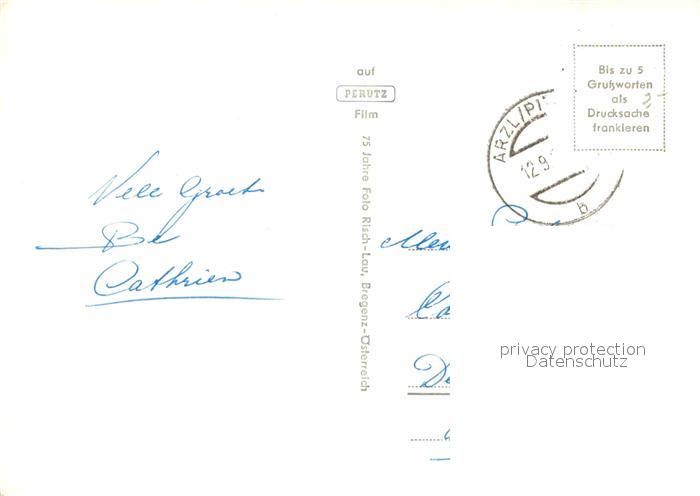 Vele Groet
Be
Cathrien
auf
PERUTZ
Film
75 Jahre Foto Risch-Lau, Bregenz-Österreich
ARZL/PI
12.9.
b
Bis zu 5
Grußworten
als
Drucksache
frankieren
2-
privacy protection
Datenschutz